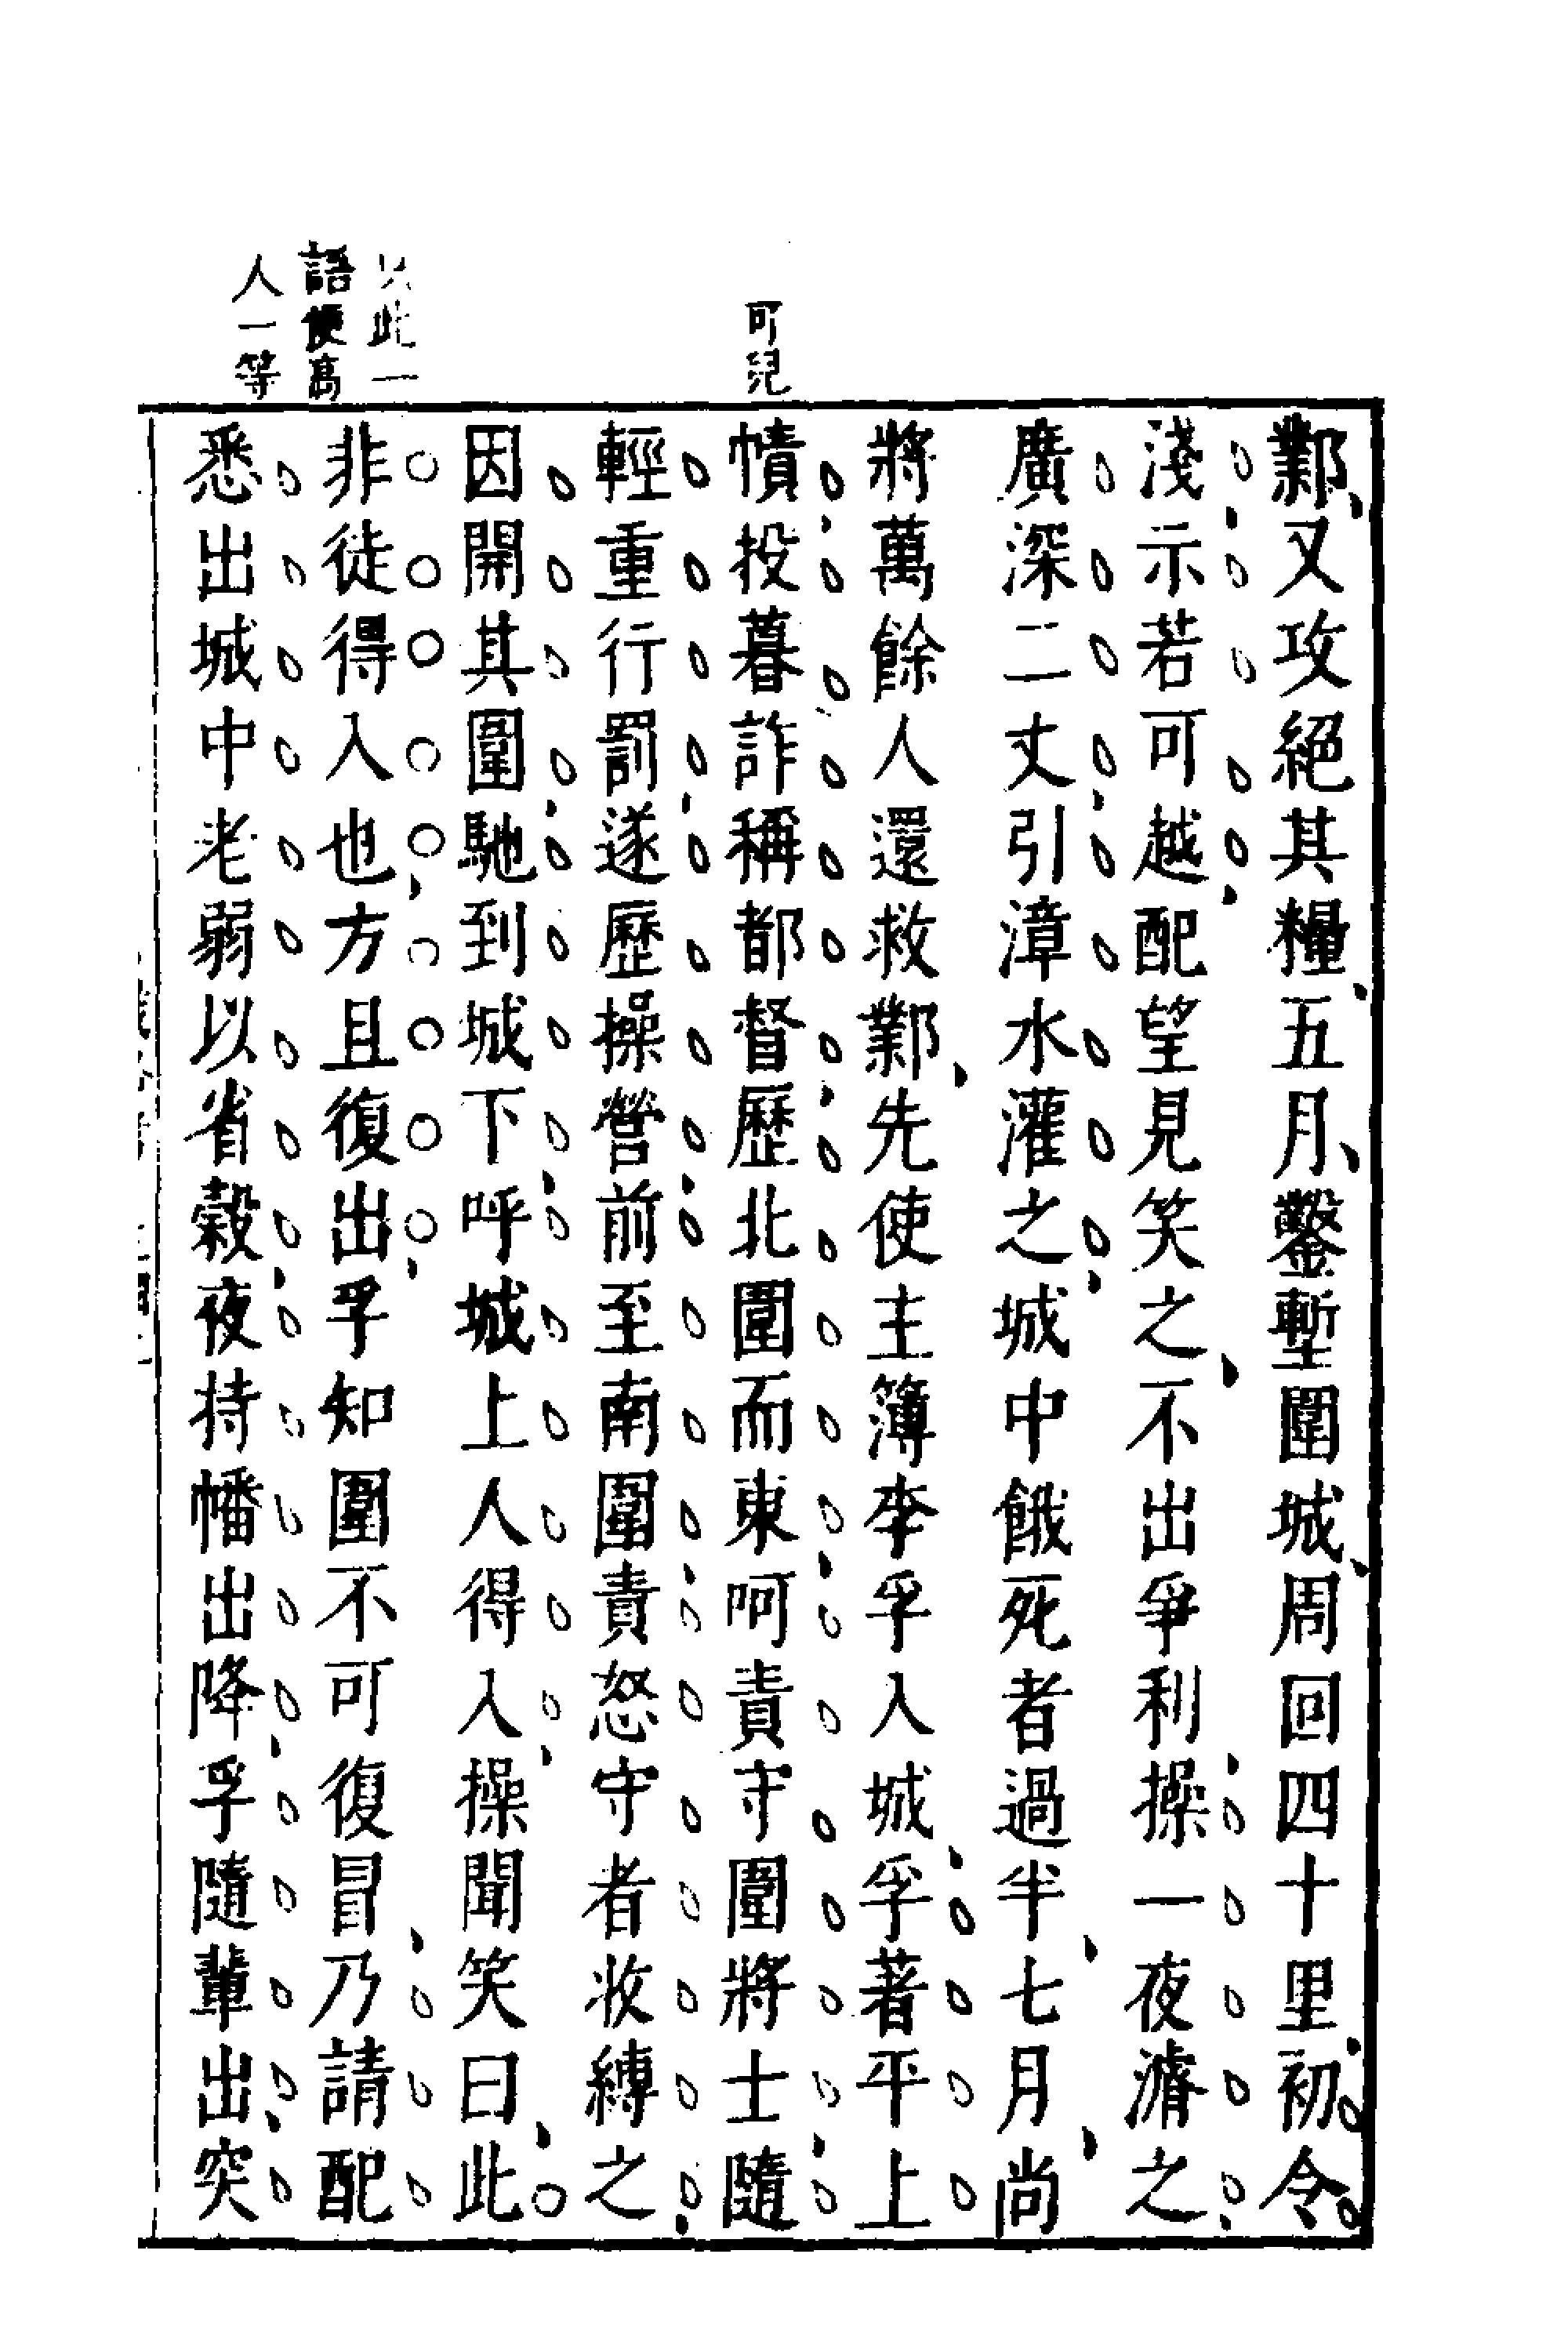 可兒
此一
語便高
人一等
鄴又攻絕其糧五月鑿塹圍城周回四十里初令
淺示若可越配望見笑之不出爭利操一夜濬之
廣深二丈引漳水灌之城中餓死者過半七月尚
將萬餘人還救鄴先使主簿李孚入城孚著平上
幘投暮詐稱都督歷北圍而東呵責守圍將士隨
輕重行罰遂歷操營前至南圍責怒守者收縛之
因開其圍馳到城下呼城上人得入操聞笑曰此
非徒得入也方且復出孚知圍不可復冒乃請配
悉出城中老弱以省穀夜持幡出降孚隨輩出突